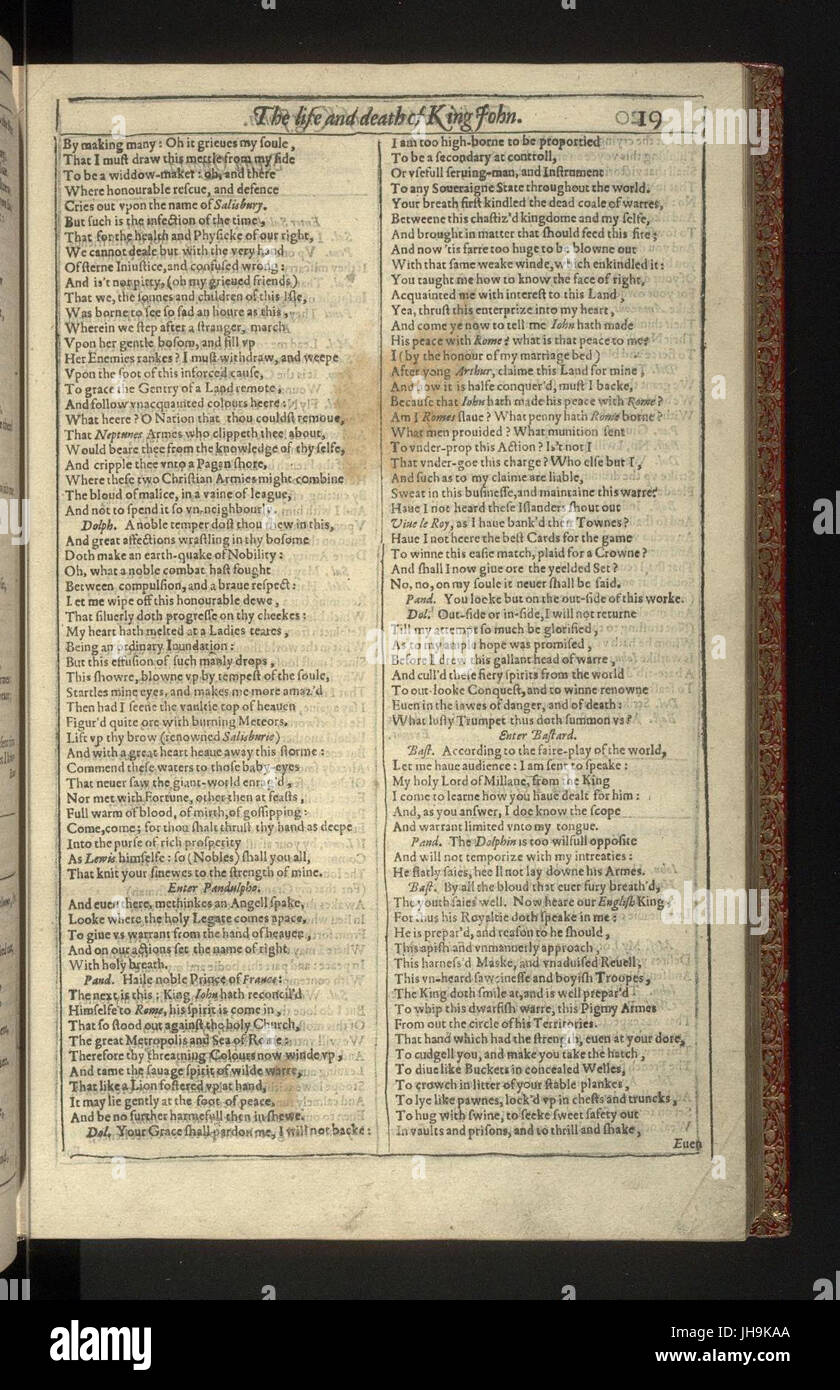 The life and death of King John.
19
By making many: Oh it grieues my soule,
That I must draw this mettle from my side
To be a widdow-maker: oh, and there
Where honourable rescue, and defence
Cries out vpon the name of Salisbury.
But such is the infection of the time,
That for the health and Physicke of our right,
We cannot deale but with the very hand
Of sterne Iniustice, and confused wrong:
And is't not pitty, (oh my grieued friends)
That we, the sonnes and children of this Isle,
Was borne to see so sad an houre as this,
Wherein we step after a stranger, march
Vpon her gentle bosom, and fill vp
Her Enemies rankes? I must withdraw, and weepe
Vpon the spot of this inforced cause,
To grace the Gentry of a Land remote,
And follow vnacquainted colours heere:
What heere? O Nation that thou couldst remoue,
That Neptunes Armes who clippeth thee about,
Would beare thee from the knowledge of thy selfe,
And cripple thee vnto a Pagan shore,
Where these two Christian Armies might combine
The bloud of malice, in a vaine of league,
And not to spend it so vn-neighbourly.
Dolph. A noble temper dost thou shew in this,
And great affections wrastling in thy bosome
Doth make an earth-quake of Nobility:
Oh, what a noble combat hast fought
Between compulsion, and a braue respect:
Let me wipe off this honourable dewe,
That siluerly doth progresse on thy cheekes:
My heart hath melted at a Ladies teares,
Being an ordinary Inundation:
But this effusion of such manly drops,
This showre, blowne vp by tempest of the soule,
Startles mine eyes, and makes me more amaz'd
Then had I seene the vaultie top of heauen
Figur'd quite ore with burning Meteors.
Lift vp thy brow (renowned Salisburie)
And with a great heart heaue away this storme:
Commend these waters to those baby-eyes
That neuer saw the giant-world enrag'd,
Nor met with Fortune, other then at feasts,
Full warm of blood, of mirth, of gossipping:
Come, come; for thou shalt thrust thy hand as deepe
Into the purse of rich prosperity
As Lewis himselfe: so (Nobles) shall you all,
That knit your sinewes to the strength of mine.
Enter Pandulpho.
And euen there, methinkes an Angell spake,
Looke where the holy Legate comes apace,
To giue vs warrant from the hand of heauen,
And on our actions set the name of right
With holy breath.
Pand. Haile noble Prince of France:
The next is this: King Iohn hath reconcil'd
Himselfe to Rome, his spirit is come in,
That so stood out against the holy Church,
The great Metropolis and Sea of Rome:
Therefore thy threatning Colours now winde vp,
And tame the sauage spirit of wilde warre,
That like a Lion fostered vp at hand,
It may lie gently at the foot of peace,
And be no further harmefull then in shewe.
Dol. Your Grace shall pardon me, I will not backe:
I am too high-borne to be proportied
To be a secondary at controll,
Or vsefull seruing-man, and Instrument
To any Soueraigne State throughout the world.
Your breath first kindled the dead coale of warres,
Betweene this chastiz'd kingdome and my selfe,
And brought in matter that should feed this fire;
And now 'tis farre too huge to be blowne out
With that same weake winde, which enkindled it:
You taught me how to know the face of right,
Acquainted me with interest to this Land,
Yea, thrust this enterprize into my heart,
And come ye now to tell me Iohn hath made
His peace with Rome? what is that peace to me?
I (by the honour of my marriage bed)
After yong Arthur, claime this Land for mine,
And now it is halfe conquer'd, must I backe,
Because that Iohn hath made his peace with Rome?
Am I Romes slaue? What penny hath Rome borne?
What men prouided? What munition sent
To vnder-prop this Action? Is't not I
That vnder-goe this charge? Who else but I,
And such as to my claime are liable,
Sweat in this businesse, and maintaine this warre?
Haue I not heard these Islanders shout out
Viue le Roy, as I haue bank'd their Townes?
Haue I not heere the best Cards for the game
To winne this easie match, plaid for a Crowne?
And shall I now giue ore the yeelded Set?
No, no, on my soule it neuer shall be said.
Pand. You looke but on the out-side of this worke.
Dol. Out-side or in-side, I will not returne
Till my attempt so much be glorified,
As to my ample hope was promised,
Before I drew this gallant head of warre,
And cull'd these fiery spirits from the world
To out-looke Conquest, and to winne renowne
Euen in the iawes of danger, and of death:
What lusty Trumpet thus doth summon vs?
Enter Bastard.
Bast. According to the faire-play of the world,
Let me haue audience: I am sent to speake:
My holy Lord of Millane, from the King
I come to learne how you haue dealt for him:
And, as you answer, I doe know the scope
And warrant limited vnto my tongue.
Pand. The Dolphin is too wilfull opposite
And will not temporize with my intreaties:
He flatly saies, hee ll not lay downe his Armes.
Bast. By all the bloud that euer fury breath'd,
The youth saies well. Now heare our English King,
For thus his Royaltie doth speake in me:
He is prepar'd, and reason to he should,
This apish and vnmannerly approach,
This harness'd Maske, and vnaduised Reuell,
This vn-heard sawcinesse and boyish Troopes,
The King doth smile at, and is well prepar'd
To whip this dwarfish warre, this Pigmy Armes
From out the circle of his Territories.
That hand which had the strength, euen at your dore,
To cudgell you, and make you take the hatch,
To diue like Buckets in concealed Welles,
To crowch in litter of your stable plankes,
To lye like pawnes, lock'd vp in chests and truncks,
To hug with swine, to seeke sweet safety out
In vaults and prisons, and to thrill and shake,
Euen
alamy
Image ID: JH9KAA
www.alamy.com